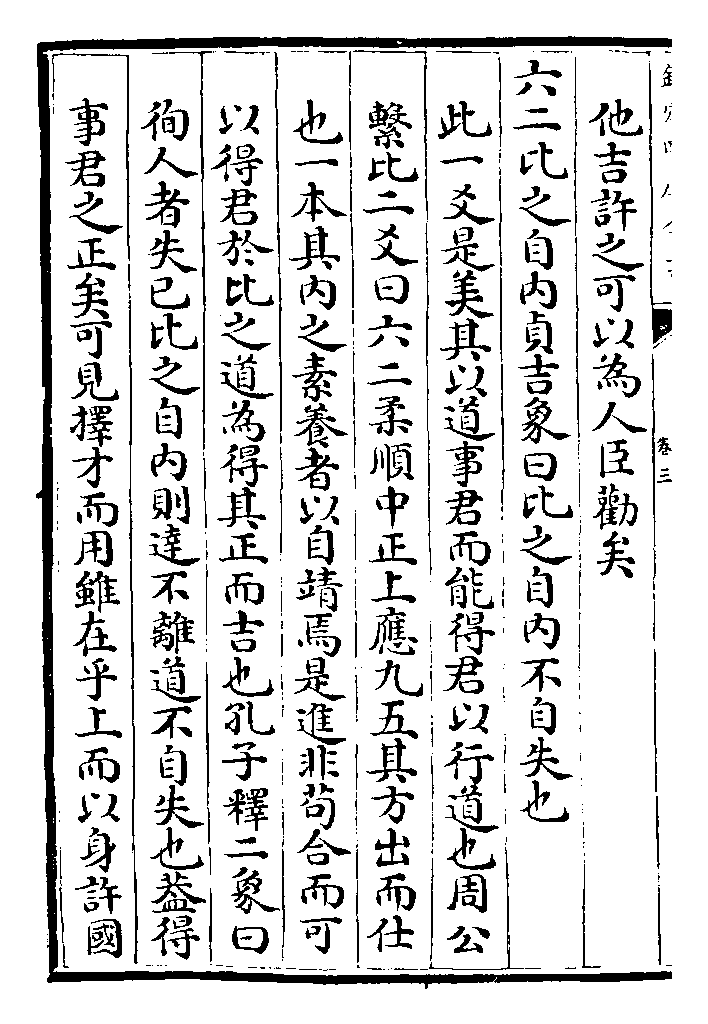 卷三
他吉許之可以為人臣勸矣
六二比之自内貞吉象曰比之自内不自失也
此一爻是美其以道事君而能得君以行道也周公
繫比二爻曰六二柔順中正上應九五其方出而仕
也一本其内之素養者以自靖焉是進非苟合而可
以得君於比之道為得其正而吉也孔子釋二象曰
徇人者失已比之自内則達不離道不自失也葢得
事君之正矣可見擇才而用雖在乎上而以身許國